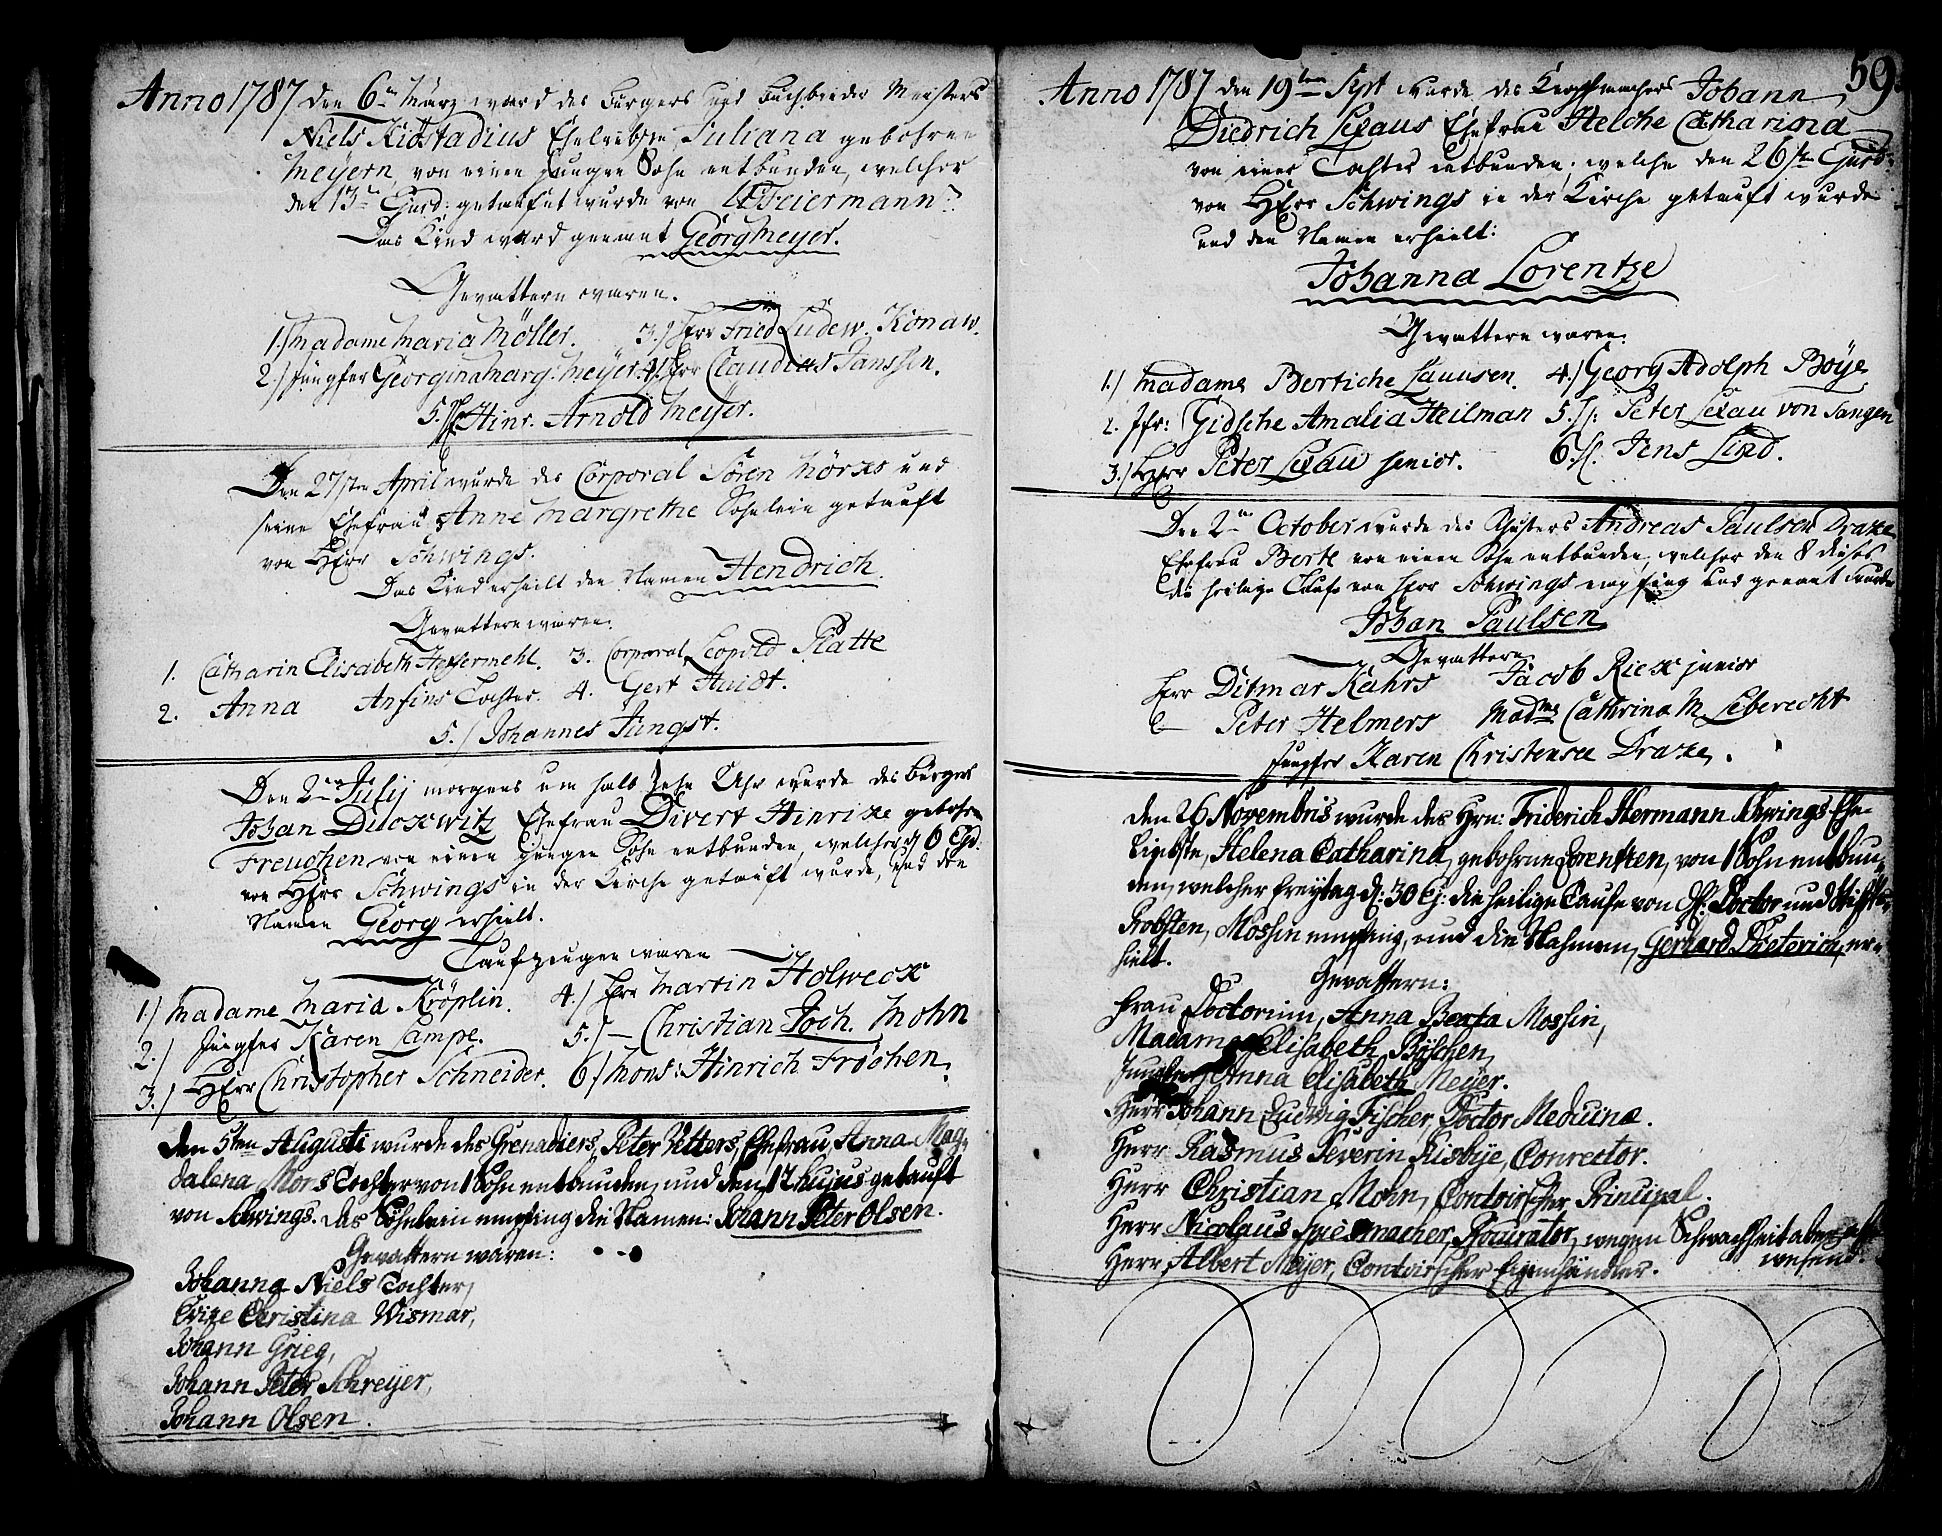 Anno 1787 den 6ten März ward des Bürgers und Buchbinder Meisters
Niels Kidstadius Eheliebste Juliana gebohrne
Meyern, von einen jungen Sohn entbunden, welcher
den 13ten Ejusd: getaufet wurde von
Das Kind ward genent Georg Meyer.
Gevattern waren.
1.) Madame Maria Möller. 3.) Herr Fried. Ludew. Konaw.
2.) Jungfer Georgina Marg: Meyer. 4.) Herr Claudius Janssen.
5. Hinr. Arnold Meyer.
Den 27sten April wurde des Corporal Sören Mörks und
seine Ehefrau Anne Margrethe Söhnlein getauft
von Herr Schwings.
Das Kind erhielt den Namen Hendrich.
Gevattern waren.
1. Catharin Elisabeth Heffermehl. 3. Corporal Leopold Platte
2. Anna Ansins Tochter. 4. Gert Huidt.
5.) Johannes Jüngst.
Den 2ten July morgens um halb zehn Uhr wurde des Bürgers
Johan Duckwitz Ehefrau Divert Hinrike gebohrn
Freuchen von einen jungen Sohn entbunden, welcher d 6 Ejd:
von Herr Schwings in der Kirche getauft wurde, und den
Namen Georg erhielt.
Taufzeugen waren
1.) Madame Maria Kröplin. 4.) Herr Martin Holweck
2.) Jungfer Karen Lampe. 5.) — Christian Joch. Mohn
3.) Herr Christopher Schneider. 6.) Mons: Hinrich Fröchen.
Den 5ten Augusti wurde des Grenadiers, Peter Vetters, Ehefrau, Anna Mag-
dalena Mons Tochter von 1 Sohn entbunden, und den 12 hujus getauft
von Schwings. Das Söhnlein empfing die Namen: Johann Peter Olsen.
Gevattern waren:
Johanna Niels Tochter,
Christina Wismar,
Johann Grieg,
Johann Peter Schreyer,
Johann Olsen.
59.
Anno 1787 den 19ten Sept wurde des Johann
Diedrich Lexaus Ehefrau Helche Catharina
von einer Tochter entbunden, welche den 26ste Ejusd:
von Herr Schwings in der Kirche getauft wurde
und den Namen erhielt:
Johanna Lorentze
Gevattern waren.
1.) Madame Bertiche Lauusen. 4.) Georg Adolph Böye
2. Jfr: Gidsche Amalia Heilman 5. Peter Lexau von Tangen
3.) Herr Peter Lexau senior. 6. Jens Lind.
Den 2ten October wurde des Andreas Paulsen Drake
Ehefrau Berte von einen Sohn entbunden, welcher den 8 dieses
die heilige Taufe von Herr Schwings empfing und genant wurde
Johan Paulsen
Gevattern
Herr Ditmar Kahrs Jacob Rieck junior
Peter Helmers Madme Cathrina M. Leberecht
Jungfer Karen Christensee Drake.
Den 26 Novembris wurde des Hrn: Friderich Hermann Schwings Ehe-
Liebste, Helena Catharina, gebohrne Lorentzen, von 1 Sohn entbun-
den, welcher Freytag d: 30 Ej: die heilige Taufe von H. Doctor und Stiffts-
Probsten, Mossin empfing, und die Nahmen, Gerhard Dieterich, er-
hielt.
Gevattern:
Frau Doctorinn, Anna Berta Mossin,
Madame Elisabeth Büschen,
Jungfer Anna Elisabeth Meyer.
Herr Johann Ludwig Fischer, Doctor Medicinæ.
Herr Rasmus Severin Risbye, Conrector.
Herr Christian Mohn, Contoirscher Principal.
Herr Nicolaus Spiesmacher, Procurator, wegen Schwachheit aber ab-
wesend.
Herr Albert Meyer, Contoirscher Eigenhändler.